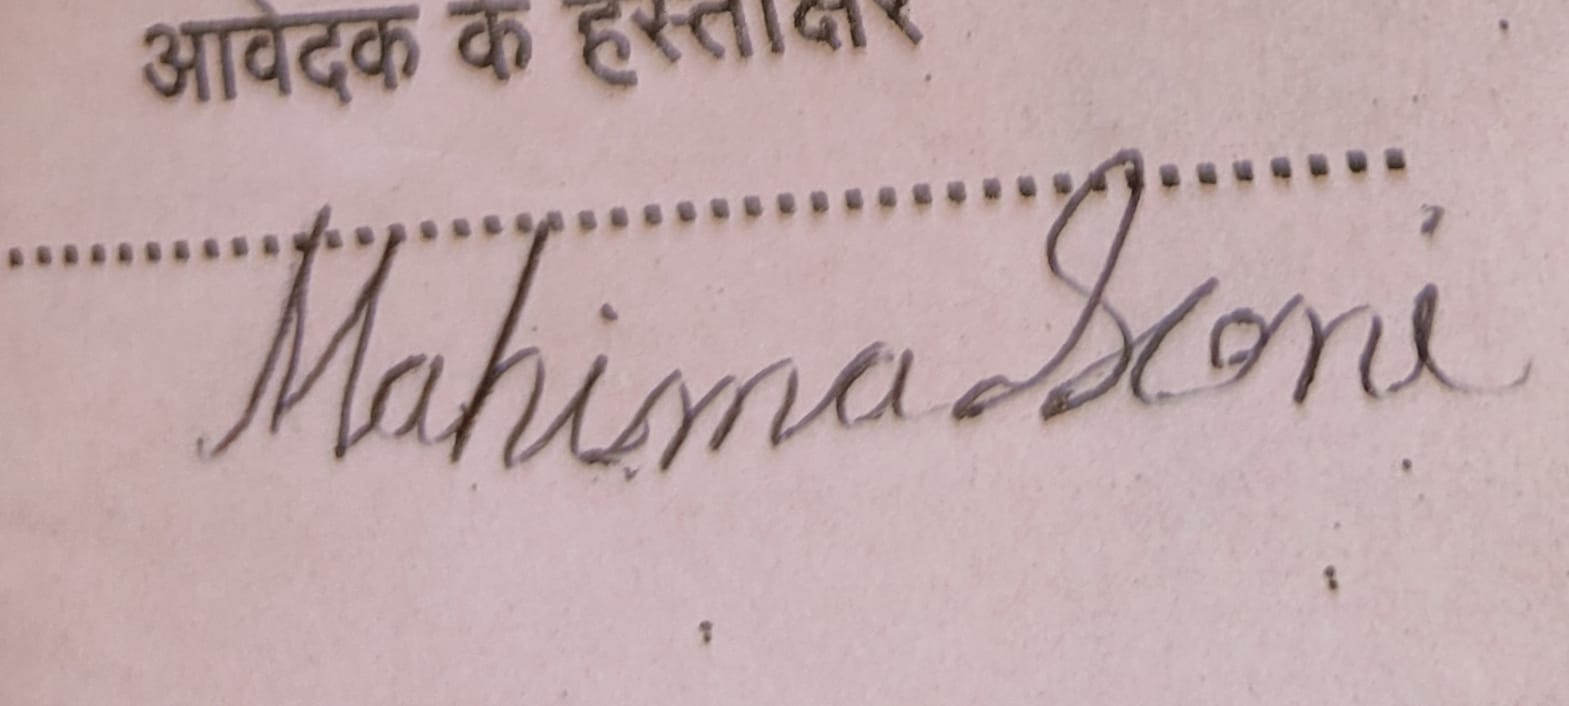 आवेदक के हस्ताक्षर
Mahima Soni